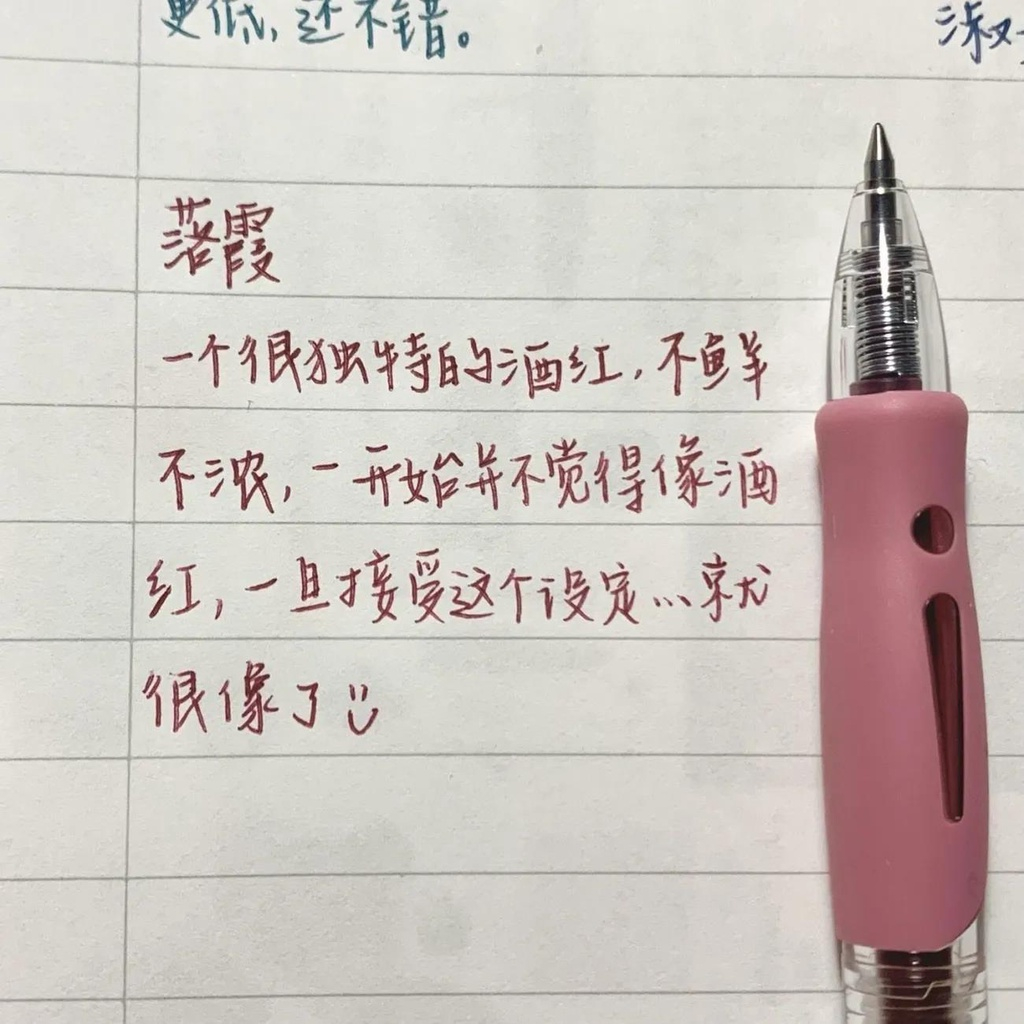 更低,还不错。
淑
落霞
一个很独特的酒红,不鲜
不浓,一开始并不觉得像酒
红,一旦接受这个设定...就
很像了